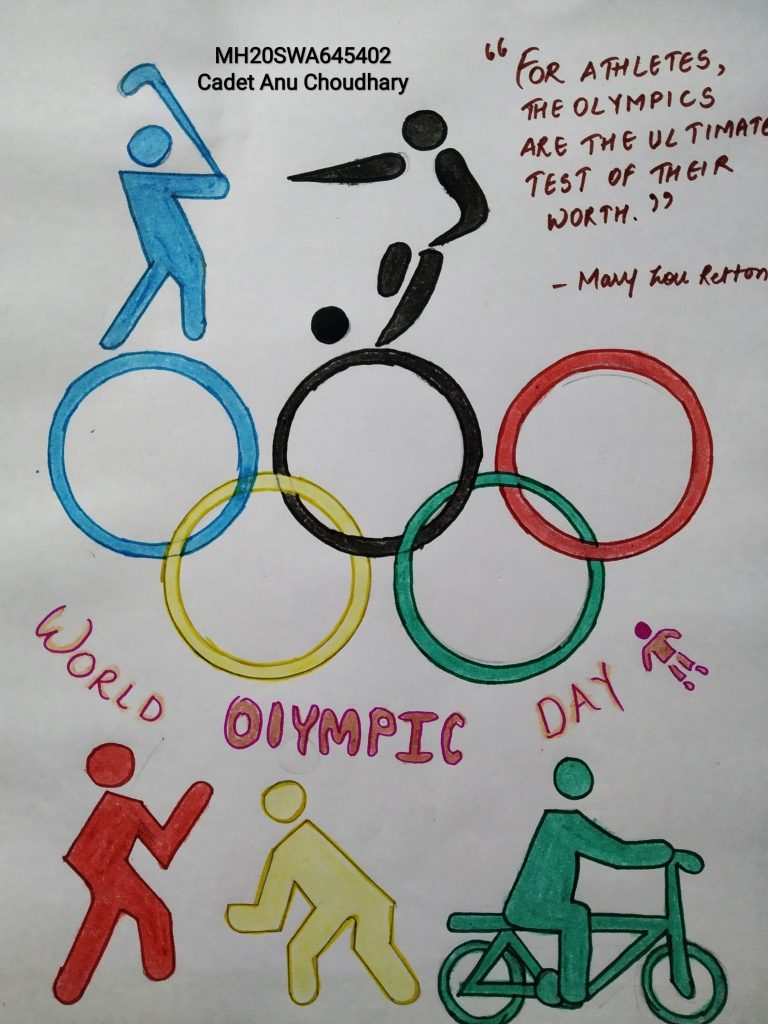 MH20SWA645402
Cadet Anu Choudhary
“FOR ATHLETES,
THE OLYMPICS
ARE THE ULTIMATE
TEST OF THEIR
WORTH.”
- Mary Lou Retton
WORLD OlYMPIC DAY